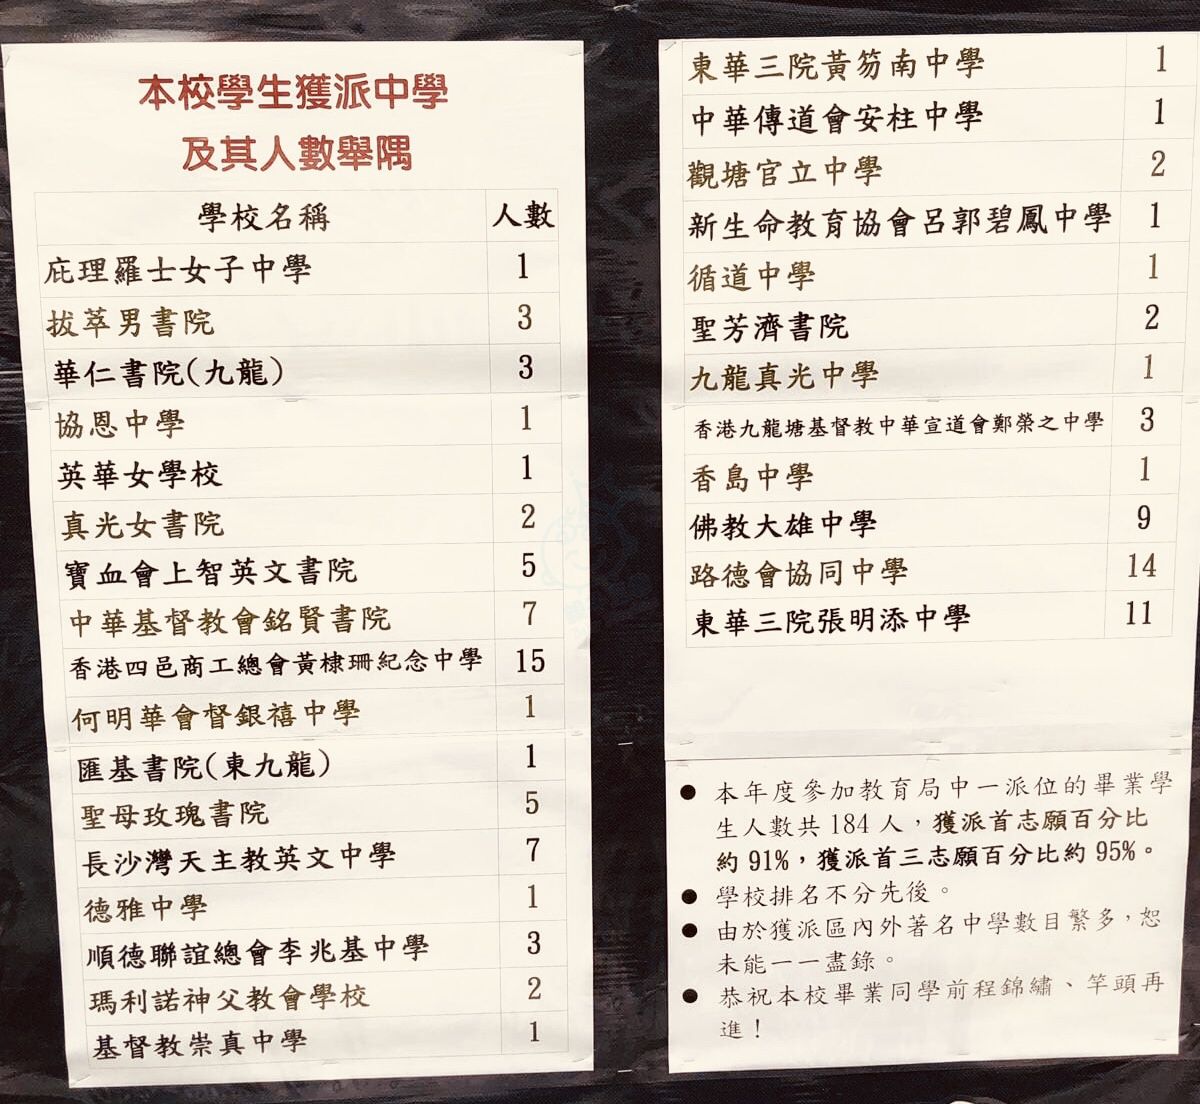 本校學生獲派中學
及其人數舉隅
學校名稱 人數
庇理羅士女子中學 1
拔萃男書院 3
華仁書院(九龍) 3
協恩中學 1
英華女學校 1
真光女書院 2
寶血會上智英文書院 5
中華基督教會銘賢書院 7
香港四邑商工總會黃棣珊紀念中學 15
何明華會督銀禧中學 1
匯基書院(東九龍) 1
聖母玫瑰書院 5
長沙灣天主教英文中學 7
德雅中學 1
順德聯誼總會李兆基中學 3
瑪利諾神父教會學校 2
基督教崇真中學 1
東華三院黃笏南中學 1
中華傳道會安柱中學 1
觀塘官立中學 2
新生命教育協會呂郭碧鳳中學 1
循道中學 1
聖芳濟書院 2
九龍真光中學 1
香港九龍塘基督教中華宣道會鄭榮之中學 3
香島中學 1
佛教大雄中學 9
路德會協同中學 14
東華三院張明添中學 11
● 本年度參加教育局中一派位的畢業學
生人數共 184 人，獲派首志願百分比
約 91%，獲派首三志願百分比約 95%。
● 學校排名不分先後。
● 由於獲派區內外著名中學數目繁多，恕
未能一一盡錄。
● 恭祝本校畢業同學前程錦繡、竿頭再
進！